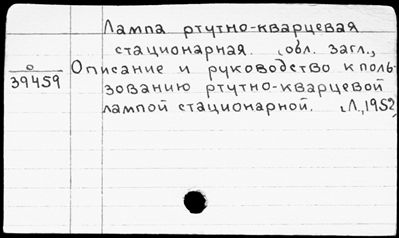 Лампа ртутно-кварцевая
стационарная. (обл. загл.,
о
39459
Описание и руководство к поль-
зованию ртутно-кварцевой
лампой стационарной. Л., 1952